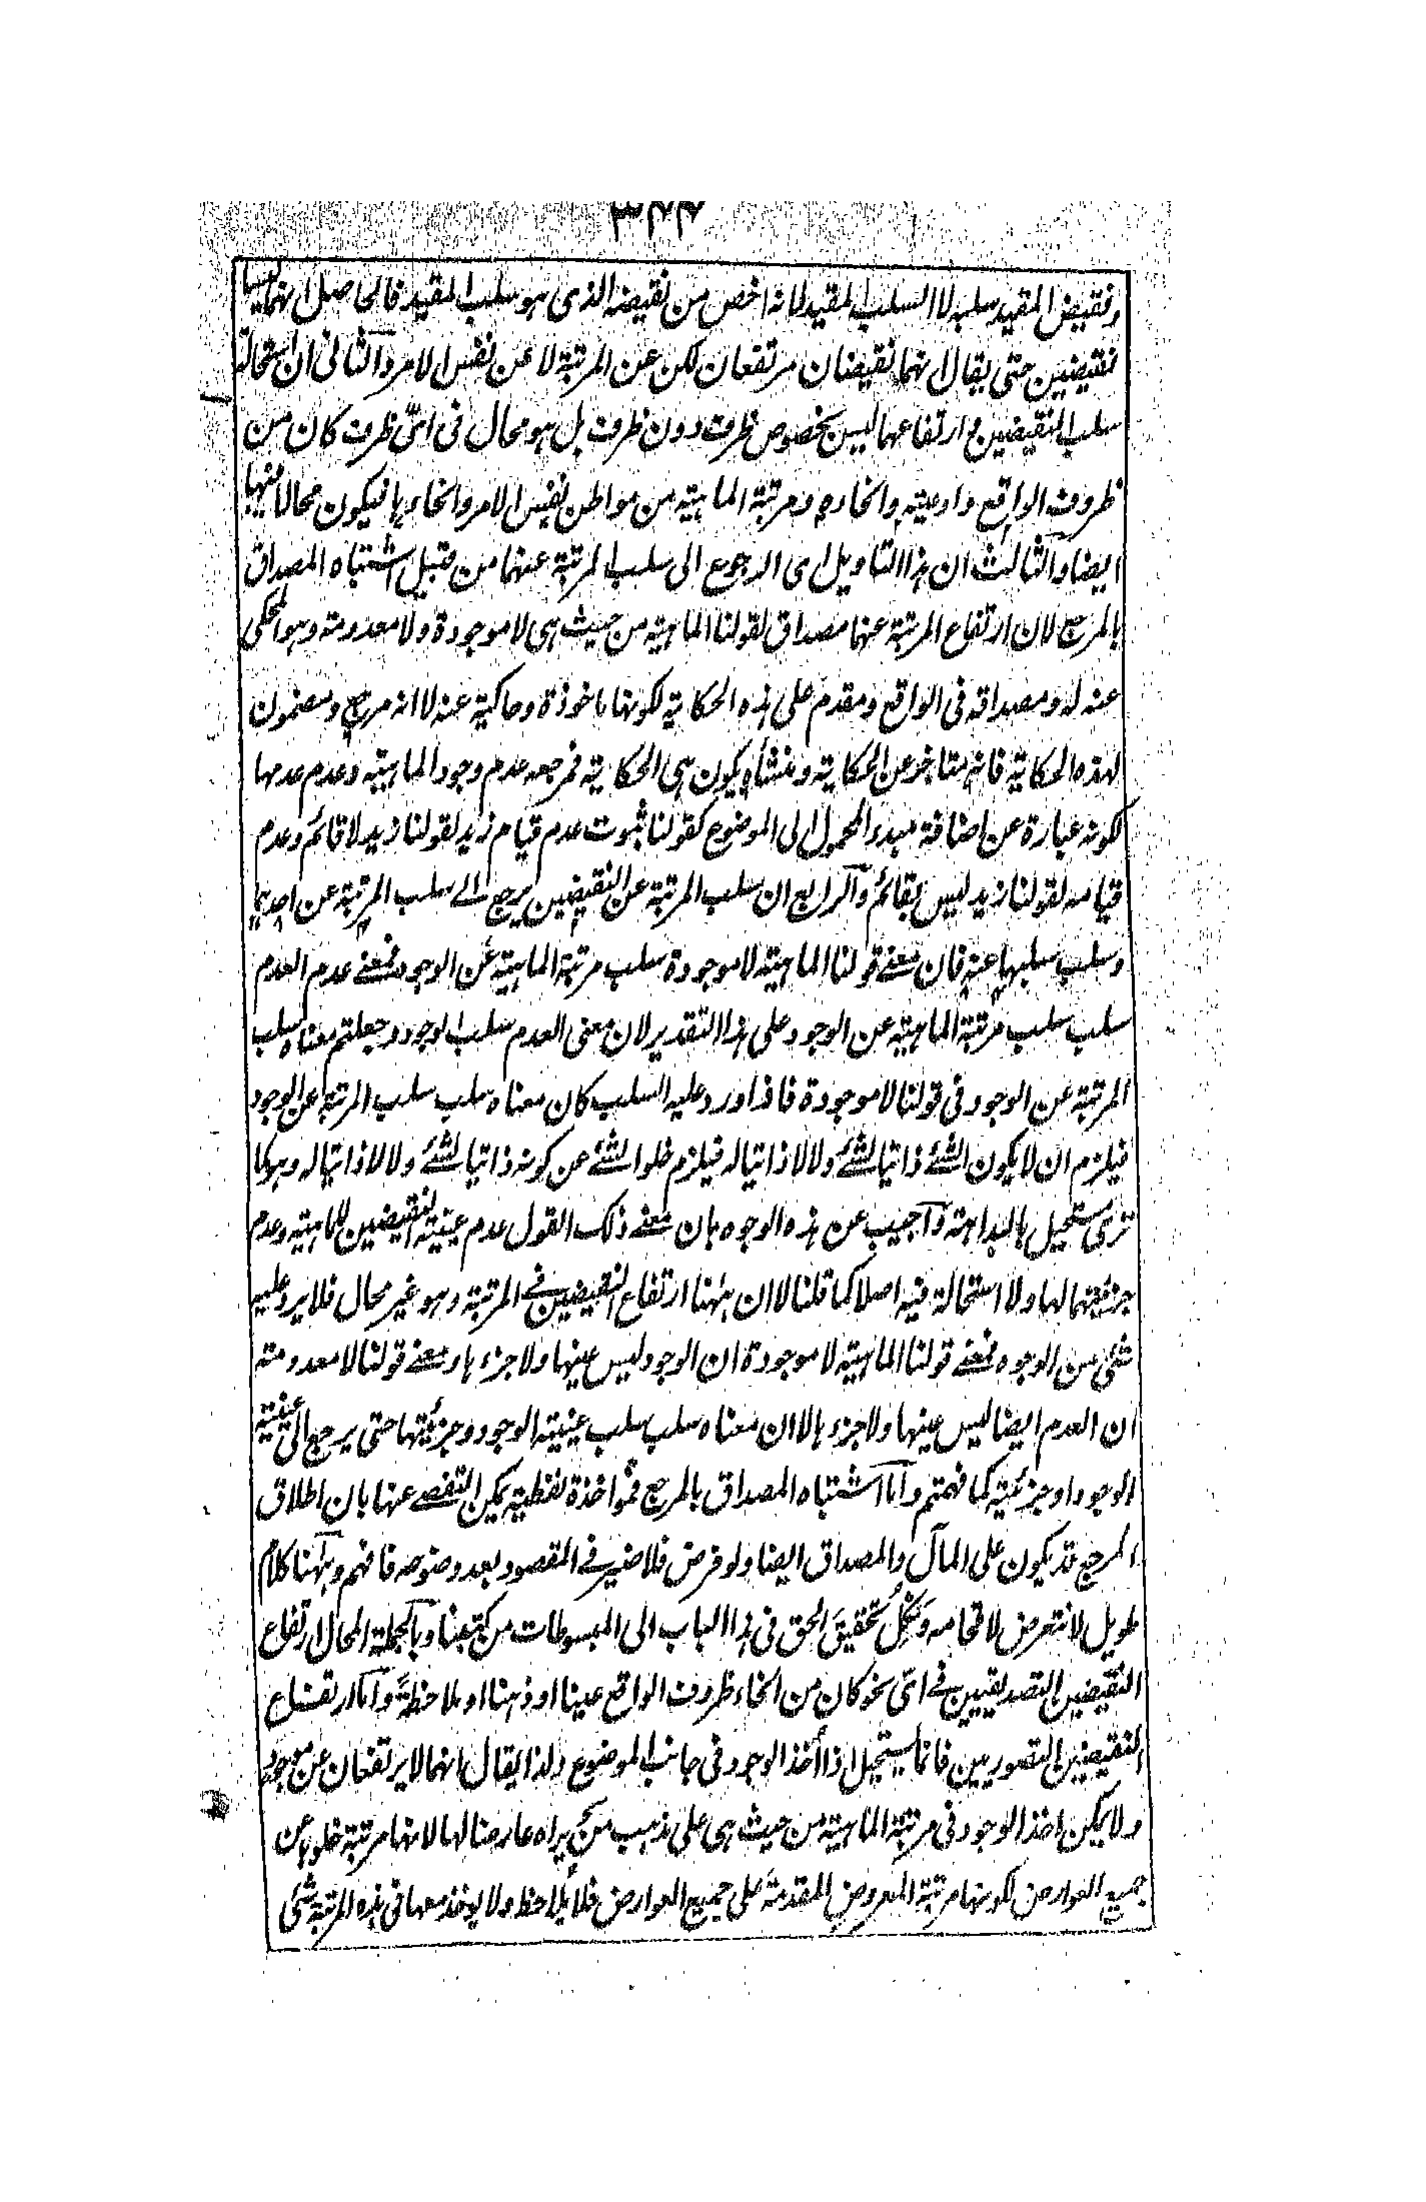 ٣٤٤
ونقيض المقيد سلبه لا السلب المقيد لانه اخص من نقيضه الذى هو سلب المقيد فالحاصل انهما ليسا
نقيضين حتى يقال انهما نقيضان مرتفعان لكن عن المرتبة لا عن نفس الامر والثانى ان استحالة
سلب النقيضين وارتفاعهما ليس بخصوص ظرف دون ظرف بل هو محال فى اىّ ظرف كان من
ظروف الواقع واوعيته وانحاءه ومرتبة الماهية من مواطن نفس الامر وانحاءها فيكون محالا فيها
ايضا والثالث ان هذا التاويل اى الرجوع الى سلب المرتبة عنهما من قبيل اشتباه المصداق
بالمرجع لان ارتفاع المرتبة عنهما مصداق لقولنا الماهية من حيث هى لا موجودة ولا معدومة وهو المحكى
عنه له ومصداقه فى الواقع ومقدم على هذه الحكاية لكونها ماخوذة وحاكية عنه لا انه مرجع ومضمون
لهذه الحكاية فانه متاخر عن الحكاية ومنشأه يكون هى الحكاية فمرجعه عدم وجود الماهية وعدم عدمها
لكونه عبارة عن اضافة مبدء المحمول الى الموضوع كقولنا ثبوت عدم قيام زيد لقولنا زيد لا قائم وعدم
قيامه لقولنا زيد ليس بقائم والرابع ان سلب المرتبة عن النقيضين يرجع الے سلب المرتبة عن احدهما
وسلب سلبها عنه فان معنے قولنا الماهية لا موجودة سلب مرتبة الماهية عن الوجود فمعنے عدم العدم
سلب سلب مرتبة الماهية عن الوجود على هذا التقدير لان معنى العدم سلب الوجود وجعلتم معناه سلب
المرتبة عن الوجود فى قولنا لا موجودة فاذا ورد عليه السلب كان معناه سلب سلب المرتبة عن الوجود
فيلزم ان لا يكون الشئ ذاتيا لشئ ولا لا ذاتيا له فيلزم خلو الشئ عن كونه ذاتيا لشئ ولا لا ذاتيا له وهو كما
ترى مستحيل بالبداهة واجيب عن هذه الوجوه بان معنے ذلك القول عدم عينية النقيضين للماهية وعدم
جزئيتهما لها ولا استحالة فيه اصلا كما قلنا لا ان ههنا ارتفاع النقيضين فے المرتبة وهو غير محال فلا يرد عليه
شئ من الوجوه فمعنے قولنا الماهية لا موجودة ان الوجود ليس عينها ولا جزءها ومعنے قولنا لا معدومة
ان العدم ايضا ليس عينها ولا جزءها لا ان معناه سلب سلب عينية الوجود وجزئيتها حتى يرجع الى عينية
الوجود او جزئيته كما فهمتم واما اشتباه المصداق بالمرجع فمؤاخذة لفظية يمكن التفصے عنها بان اطلاق
المرجع قد يكون على المآل والمصداق ايضا ولو فرض فلا ضير فے المقصود بعد وضوحه فافهم وههنا كلام
طويل لا نتعرض لاقحامه ونكل تحقيق الحق فى هذا الباب الى المبسوطات من كتبنا وبالجملة المحال ارتفاع
النقيضين التصديقيين فے اىّ نحو كان من انحاء ظروف الواقع عينا او ذهنا او ملاحظة واما ارتفاع
النقيضين التصوريين فانما يستحيل اذا أخذ الوجود فى جانب الموضوع ولذا يقال انهما لا يرتفعان عن موجود
ولا يمكن اخذ الوجود فى مرتبة الماهية من حيث هى على مذهب من يراه عارضا لها لانها مرتبة خلوها عن
جميع العوارض لكونها مرتبة المعروض المقدمة على جميع العوارض فلا يلاحظ ولا يوخذ معها فى هذه المرتبة شئ